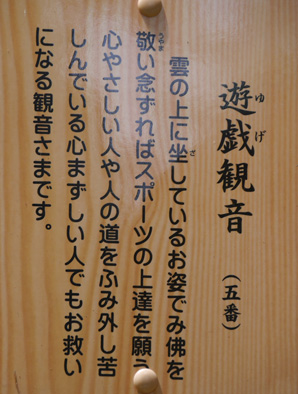 遊戯観音（五番）
雲の上に坐しているお姿でみ佛を
敬い念ずればスポーツの上達を願う
心やさしい人や人の道をふみ外し苦
しんでいる心まずしい人でもお救い
になる観音さまです。